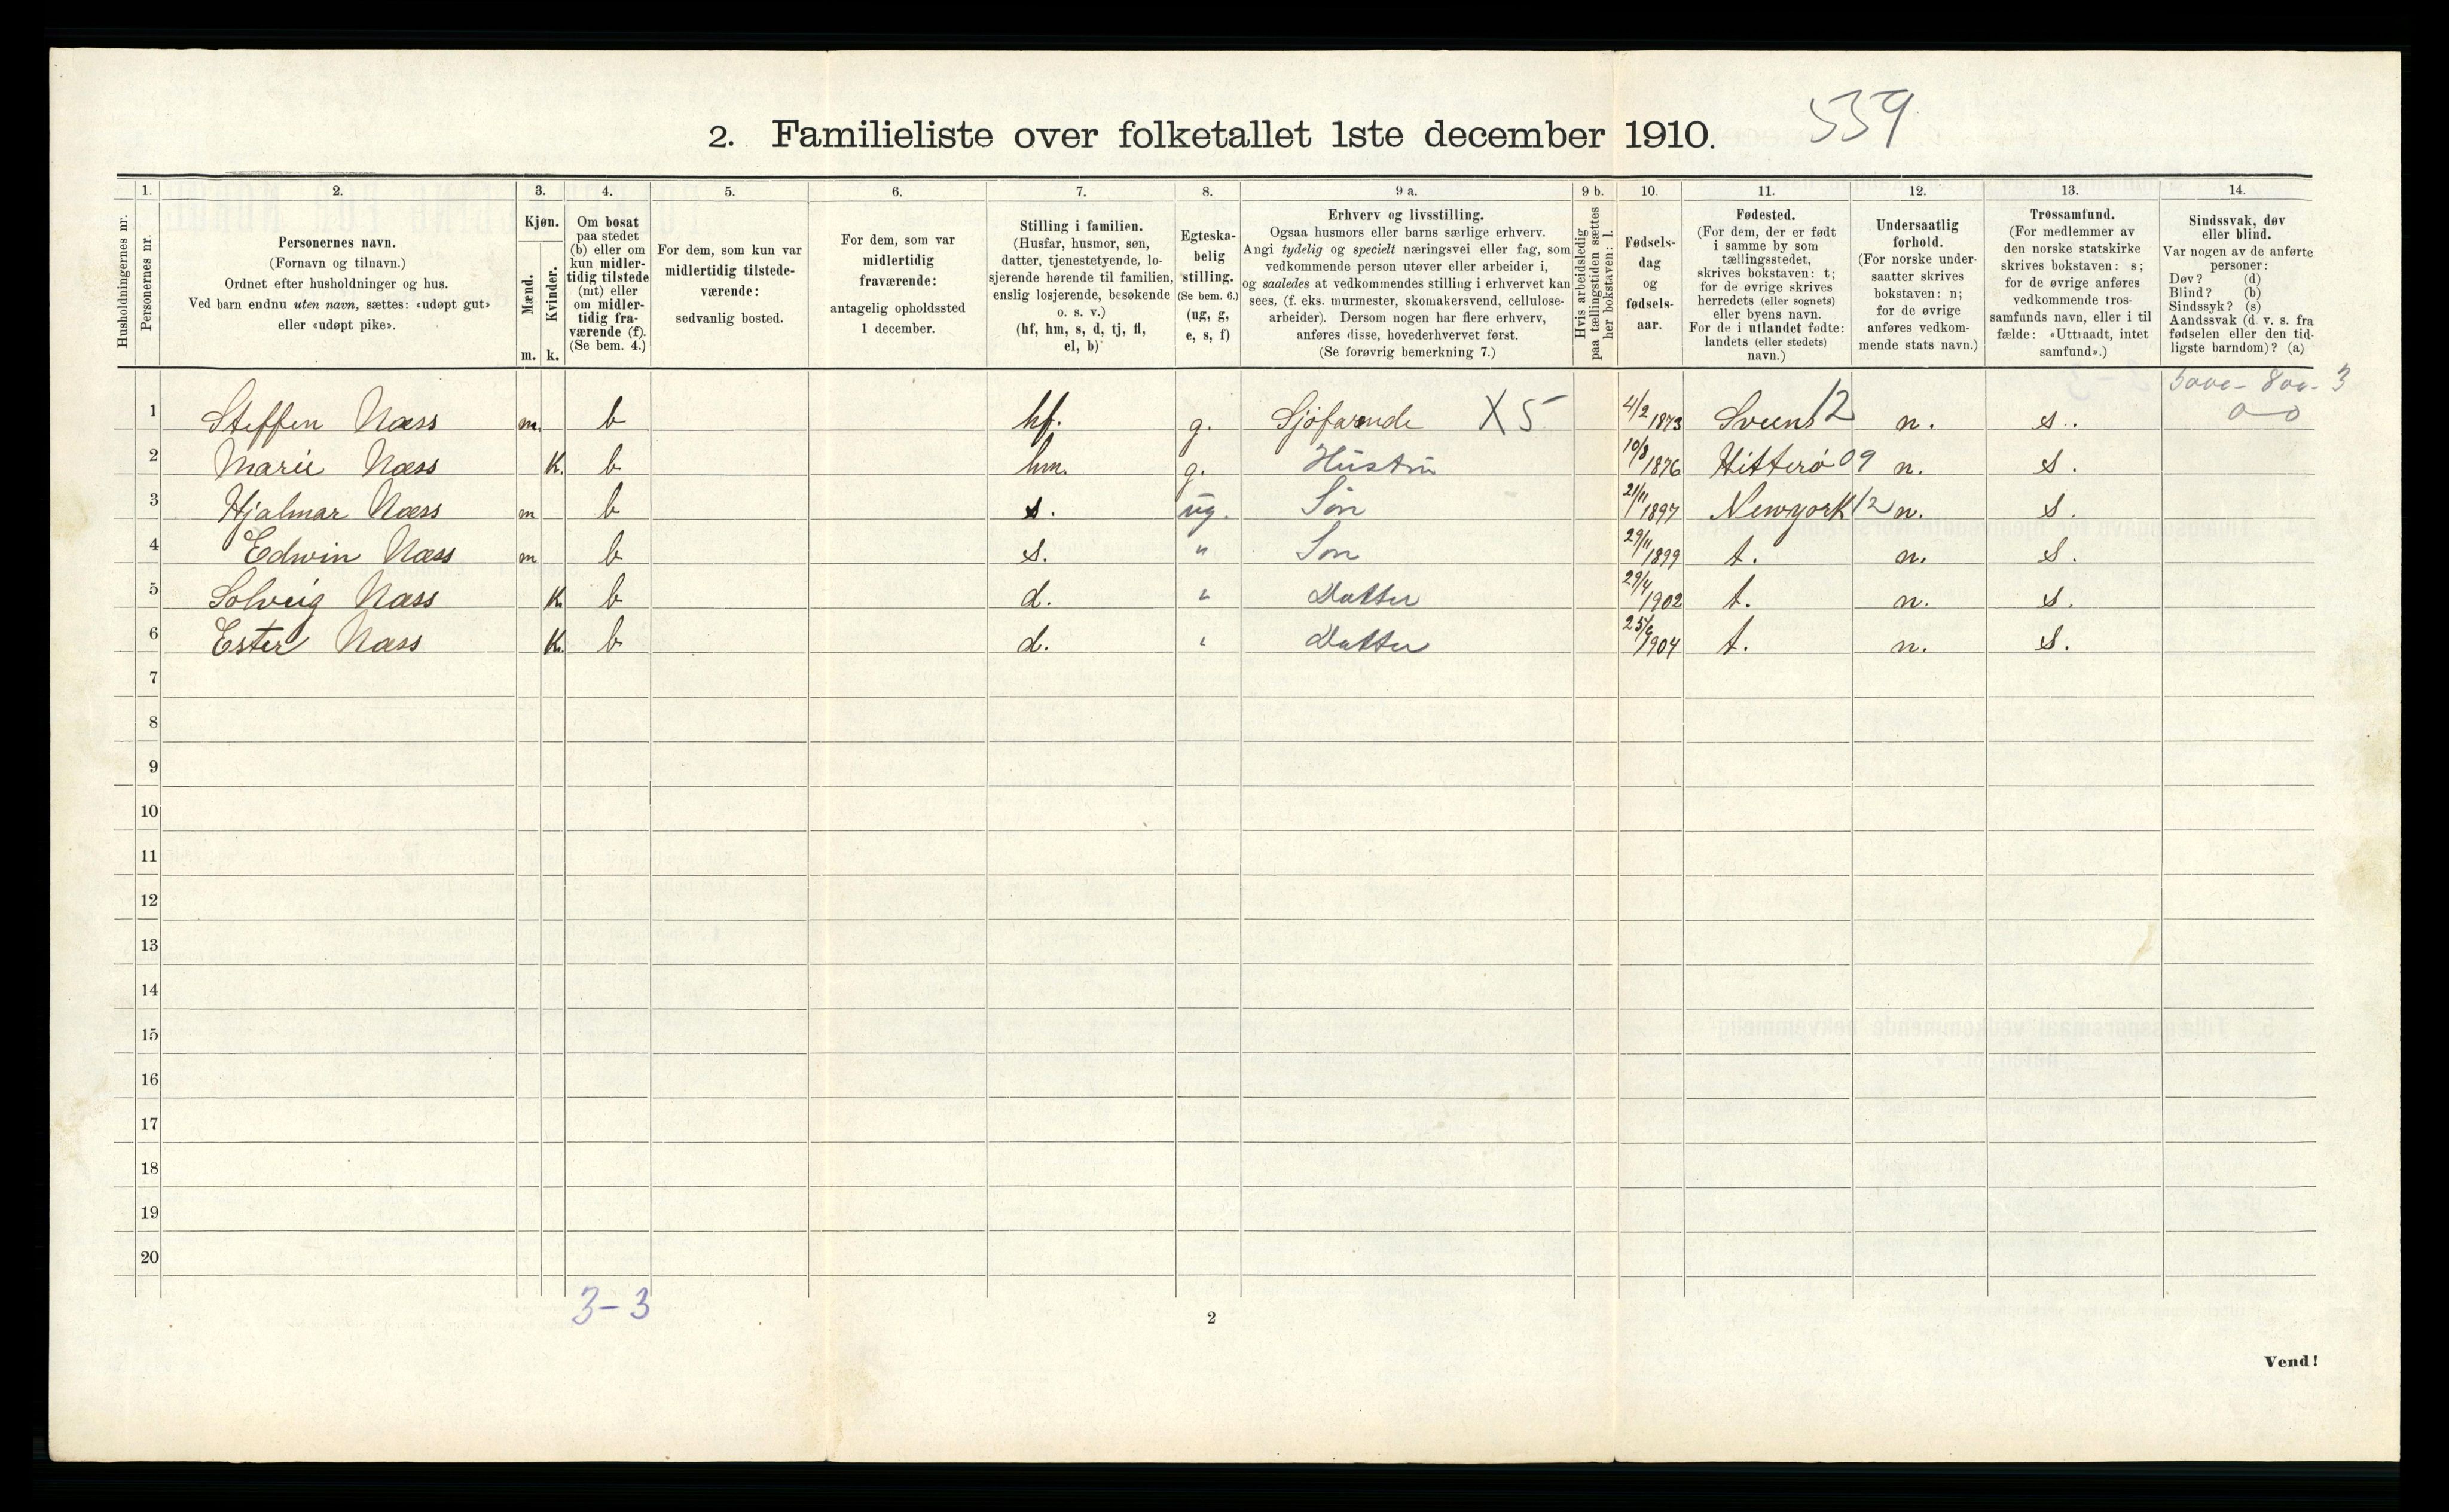 2. Familieliste over folketallet 1ste december 1910. 539
Husholdningernes nr.
1.
Personernes nr.
2.
Personernes navn.
(Fornavn og tilnavn.)
Ordnet efter husholdninger og hus.
Ved barn endnu uten navn, sættes: «udøpt gut»
eller «udøpt pike».
3.
Kjøn.
Mænd.
m.
Kvinder.
k.
4.
Om bosat
paa stedet
(b) eller om
kun midler-
tidig tilstede
(mt) eller
om midler-
tidig fra-
værende (f).
(Se bem. 4.)
5.
For dem, som kun var
midlertidig tilstede-
værende:
sedvanlig bosted.
6.
For dem, som var
midlertidig
fraværende:
antagelig opholdssted
1 december.
7.
Stilling i familien.
(Husfar, husmor, søn,
datter, tjenestetyende, lo-
sjerende hørende til familien,
enslig losjerende, besøkende
o. s. v.)
(hf, hm, s, d, tj, fl,
el, b)
8.
Egteska-
belig
stilling.
(Se bem. 6.)
(ug, g,
e, s, f)
9 a.
Erhverv og livsstilling.
Ogsaa husmors eller barns særlige erhverv.
Angi tydelig og specielt næringsvei eller fag, som
vedkommende person utøver eller arbeider i,
og saaledes at vedkommendes stilling i erhvervet kan
sees, (f. eks. murmester, skomakersvend, cellulose-
arbeider). Dersom nogen har flere erhverv,
anføres disse, hovederhvervet først.
(Se forøvrig bemerkning 7.)
9 b.
Hvis arbeidsledig
paa tællingstiden sættes
her bokstaven: l.
10.
Fødsels-
dag
og
fødsels-
aar.
11.
Fødested.
(For dem, der er født
i samme by som
tællingsstedet,
skrives bokstaven: t;
for de øvrige skrives
herredets (eller sognets)
eller byens navn.
For de i utlandet fødte:
landets (eller stedets)
navn.)
12.
Undersaatlig
forhold.
(For norske under-
saatter skrives
bokstaven: n;
for de øvrige
anføres vedkom-
mende stats navn.)
13.
Trossamfund.
(For medlemmer av
den norske statskirke
skrives bokstaven: s;
for de øvrige anføres
vedkommende tros-
samfunds navn, eller i til
fælde: «Uttraadt, intet
samfund».)
14.
Sindssvak, døv
eller blind.
Var nogen av de anførte
personer:
Døv? (d)
Blind? (b)
Sindssyk? (s)
Aandssvak (d. v. s. fra
fødselen eller den tid-
ligste barndom)? (a)
800- 3
1 Steffen Næss m. b hf. g. Sjøfarende X 5 4/2 1873 12 n. s.
2 Marie Næss K. b hm. g. Hustru 10/8 1876 Hitterø 09 n. s.
3 Hjalmar Næss m b s. ug. Søn 21/11 1897 Newyork 12 n. s.
4 Edwin Næss m b s. " Søn 29/11 1899 t. n. s.
5 Solveig Næss K. b d. " Datter 29/4 1902 t. n. s.
6 Ester Næss K. b d. " Datter 25/6 1904 t. n. s.
7
8
9
10
11
12
13
14
15
16
17
18
19
20
3-3
2
Vend!